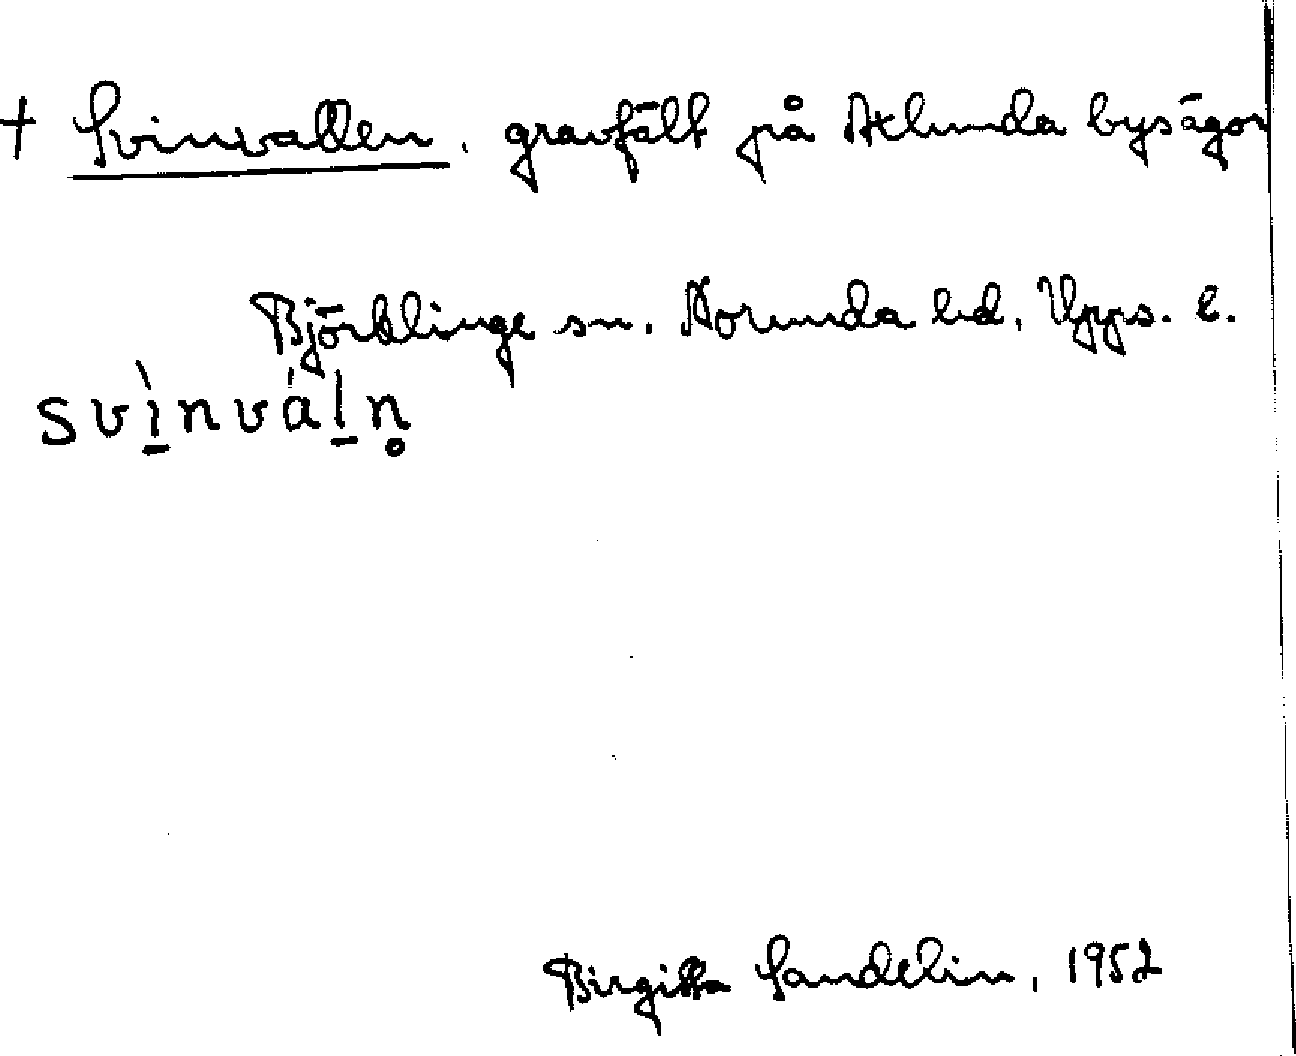 + Svinvallen, gravfält på Åklunda bysägor
Björklinge sn. Norunda hd, Upps. l.
svìnváḻn̥
Birgitta Sandelin, 1952